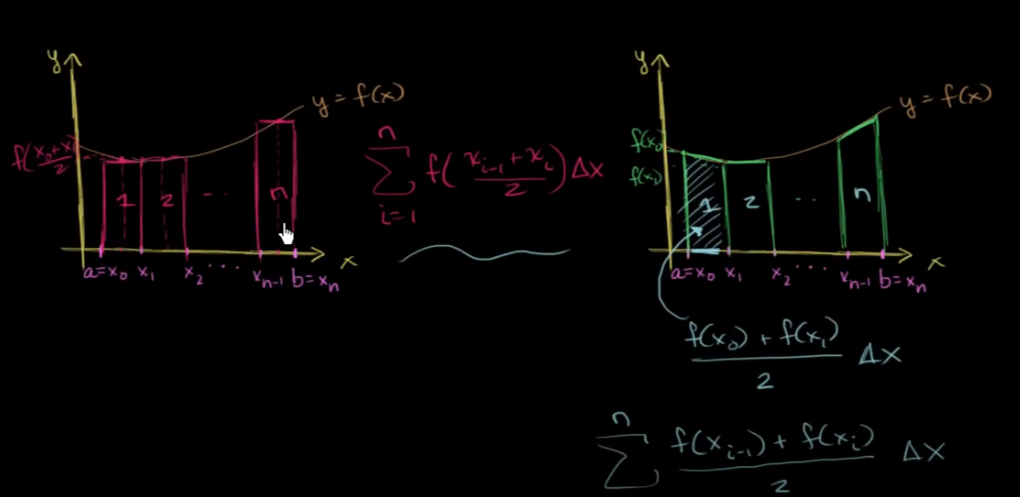 y
y = f(x)
f(x₀+x₁/2)
1 2 ... n
a=x₀ x₁ x₂ ... xₙ₋₁ b=xₙ
x
n
∑ f((xᵢ₋₁+xᵢ)/2)Δx
i=1
y
y = f(x)
f(x₀)
f(x₁)
1 2 ... n
a=x₀ x₁ x₂ ... xₙ₋₁ b=xₙ
x
(f(x₀)+f(x₁))/2 Δx
n
∑ (f(xᵢ₋₁)+f(xᵢ))/2 Δx